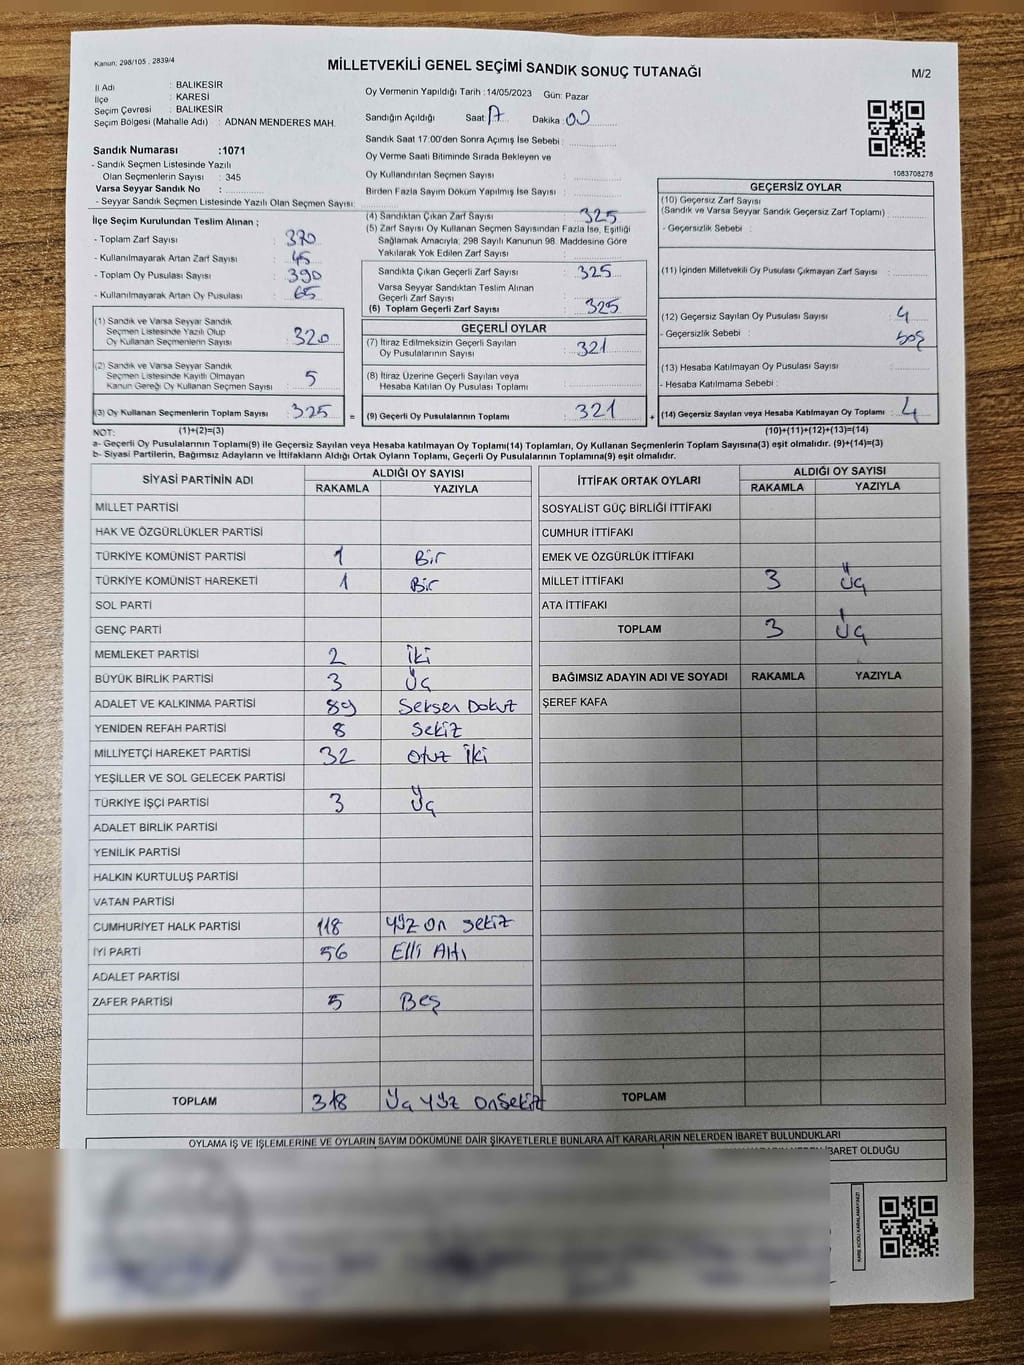 Kanun: 298/105 , 2839/4
MİLLETVEKİLİ GENEL SEÇİMİ SANDIK SONUÇ TUTANAĞI
M/2
İl Adı : BALIKESİR
İlçe : KARESİ
Seçim Çevresi : BALIKESİR
Seçim Bölgesi (Mahalle Adı) : ADNAN MENDERES MAH.
Sandık Numarası :1071
- Sandık Seçmen Listesinde Yazılı
Olan Seçmenlerin Sayısı : 345
Varsa Seyyar Sandık No :
- Seyyar Sandık Seçmen Listesinde Yazılı Olan Seçmen Sayısı:
Oy Vermenin Yapıldığı Tarih :14/05/2023 Gün: Pazar
Sandığın Açıldığı Saat: 17 Dakika: 00
Sandık Saat 17:00'den Sonra Açımış İse Sebebi :
Oy Verme Saati Bitiminde Sırada Bekleyen ve
Oy Kullandırılan Seçmen Sayısı :
Birden Fazla Sayım Döküm Yapılmış İse Sayısı :
1083708278
İlçe Seçim Kurulundan Teslim Alınan ;
- Toplam Zarf Sayısı : 370
- Kullanılmayarak Artan Zarf Sayısı : 45
- Toplam Oy Pusulası Sayısı : 390
- Kullanılmayarak Artan Oy Pusulası : 65
(1) Sandık ve Varsa Seyyar Sandık
Seçmen Listesinde Yazılı Olup
Oy Kullanan Seçmenlerin Sayısı : 320
(2) Sandık ve Varsa Seyyar Sandık
Seçmen Listesinde Kayıtlı Olmayan
Kanun Gereği Oy Kullanan Seçmen Sayısı : 5
(3) Oy Kullanan Seçmenlerin Toplam Sayısı : 325 =
(4) Sandıktan Çıkan Zarf Sayısı : 325
(5) Zarf Sayısı Oy Kullanan Seçmen Sayısından Fazla İse, Eşitliği
Sağlamak Amacıyla; 298 Sayılı Kanunun 98. Maddesine Göre
Yakılarak Yok Edilen Zarf Sayısı :
Sandıkta Çıkan Geçerli Zarf Sayısı : 325
Varsa Seyyar Sandıktan Teslim Alınan
Geçerli Zarf Sayısı :
(6) Toplam Geçerli Zarf Sayısı : 325
GEÇERLİ OYLAR
(7) İtiraz Edilmeksizin Geçerli Sayılan
Oy Pusulalarının Sayısı : 321
(8) İtiraz Üzerine Geçerli Sayılan veya
Hesaba Katılan Oy Pusulası Toplamı :
(9) Geçerli Oy Pusulalarının Toplamı : 321 +
GEÇERSİZ OYLAR
(10) Geçersiz Zarf Sayısı
(Sandık ve Varsa Seyyar Sandık Geçersiz Zarf Toplamı) :
- Geçersizlik Sebebi :
(11) İçinden Milletvekili Oy Pusulası Çıkmayan Zarf Sayısı :
(12) Geçersiz Sayılan Oy Pusulası Sayısı : 4
- Geçersizlik Sebebi : boş
(13) Hesaba Katılmayan Oy Pusulası Sayısı :
- Hesaba Katılmama Sebebi :
(14) Geçersiz Sayılan veya Hesaba Katılmayan Oy Toplamı : 4
NOT: (1)+(2)=(3) (10)+(11)+(12)+(13)=(14)
a- Geçerli Oy Pusulalarının Toplamı(9) ile Geçersiz Sayılan veya Hesaba katılmayan Oy Toplamı(14) Toplamları, Oy Kullanan Seçmenlerin Toplam Sayısına(3) eşit olmalıdır. (9)+(14)=(3)
b- Siyasi Partilerin, Bağımsız Adayların ve İttifakların Aldığı Ortak Oyların Toplamı, Geçerli Oy Pusulalarının Toplamına(9) eşit olmalıdır.
SİYASİ PARTİNİN ADI ALDIĞI OY SAYISI
RAKAMLA YAZIYLA
MİLLET PARTİSİ
HAK VE ÖZGÜRLÜKLER PARTİSİ
TÜRKİYE KOMÜNİST PARTİSİ 1 Bir
TÜRKİYE KOMÜNİST HAREKETİ 1 Bir
SOL PARTİ
GENÇ PARTİ
MEMLEKET PARTİSİ 2 İki
BÜYÜK BİRLİK PARTİSİ 3 Üç
ADALET VE KALKINMA PARTİSİ 89 Seksen Dokuz
YENİDEN REFAH PARTİSİ 8 Sekiz
MİLLİYETÇİ HAREKET PARTİSİ 32 Otuz İki
YEŞİLLER VE SOL GELECEK PARTİSİ
TÜRKİYE İŞÇİ PARTİSİ 3 Üç
ADALET BİRLİK PARTİSİ
YENİLİK PARTİSİ
HALKIN KURTULUŞ PARTİSİ
VATAN PARTİSİ
CUMHURİYET HALK PARTİSİ 118 Yüz on sekiz
İYİ PARTİ 56 Elli Altı
ADALET PARTİSİ
ZAFER PARTİSİ 5 Beş
TOPLAM 318 Üç yüz onsekiz
İTTİFAK ORTAK OYLARI ALDIĞI OY SAYISI
RAKAMLA YAZIYLA
SOSYALİST GÜÇ BİRLİĞİ İTTİFAKI
CUMHUR İTTİFAKI
EMEK VE ÖZGÜRLÜK İTTİFAKI
MİLLET İTTİFAKI 3 Üç
ATA İTTİFAKI
TOPLAM 3 Üç
BAĞIMSIZ ADAYIN ADI VE SOYADI RAKAMLA YAZIYLA
ŞEREF KAFA
TOPLAM
OYLAMA İŞ VE İŞLEMLERİNE VE OYLARIN SAYIM DÖKÜMÜNE DAİR ŞİKAYETLERLE BUNLARA AİT KARARLARIN NELERDEN İBARET BULUNDUKLARI
İBARET OLDUĞU
KARE KODU KARALAMAYINIZ!